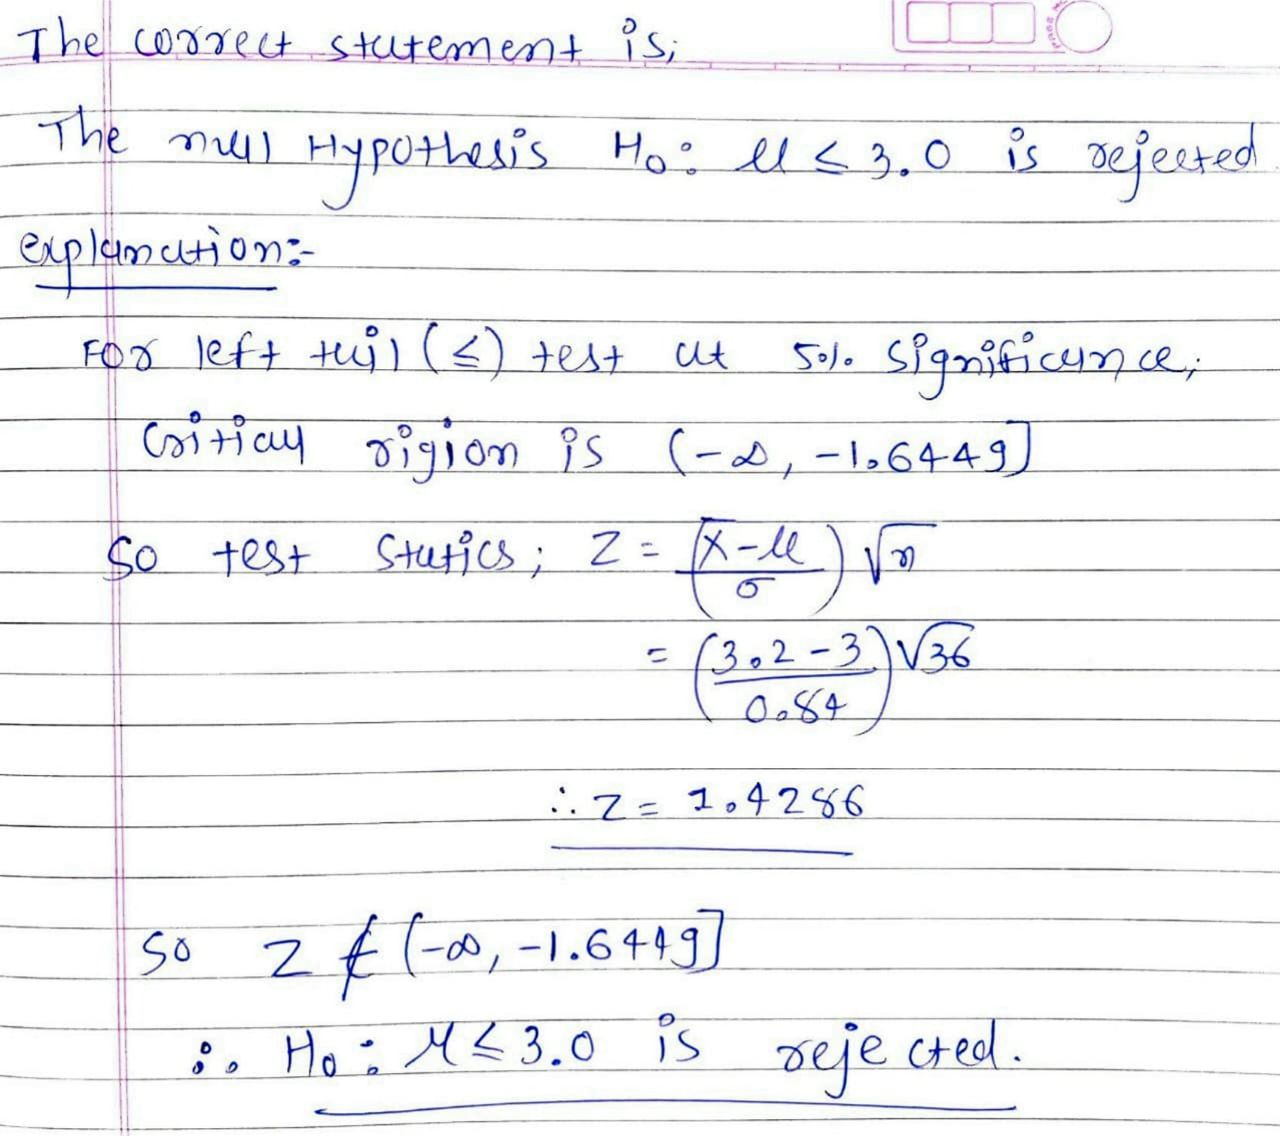 The correct statement is;
The null Hypothesis H₀: μ ≤ 3.0 is rejected.
explanation:-
For left tail (≤) test at 5% significance,
Critical rigion is (-∞, -1.6449]
So test Statics; Z = (x̅-μ/σ) √n
= (3.2-3/0.84) √36
∴ Z = 1.4286
So Z ∉ (-∞, -1.6449]
∴ H₀: μ ≤ 3.0 is rejected.